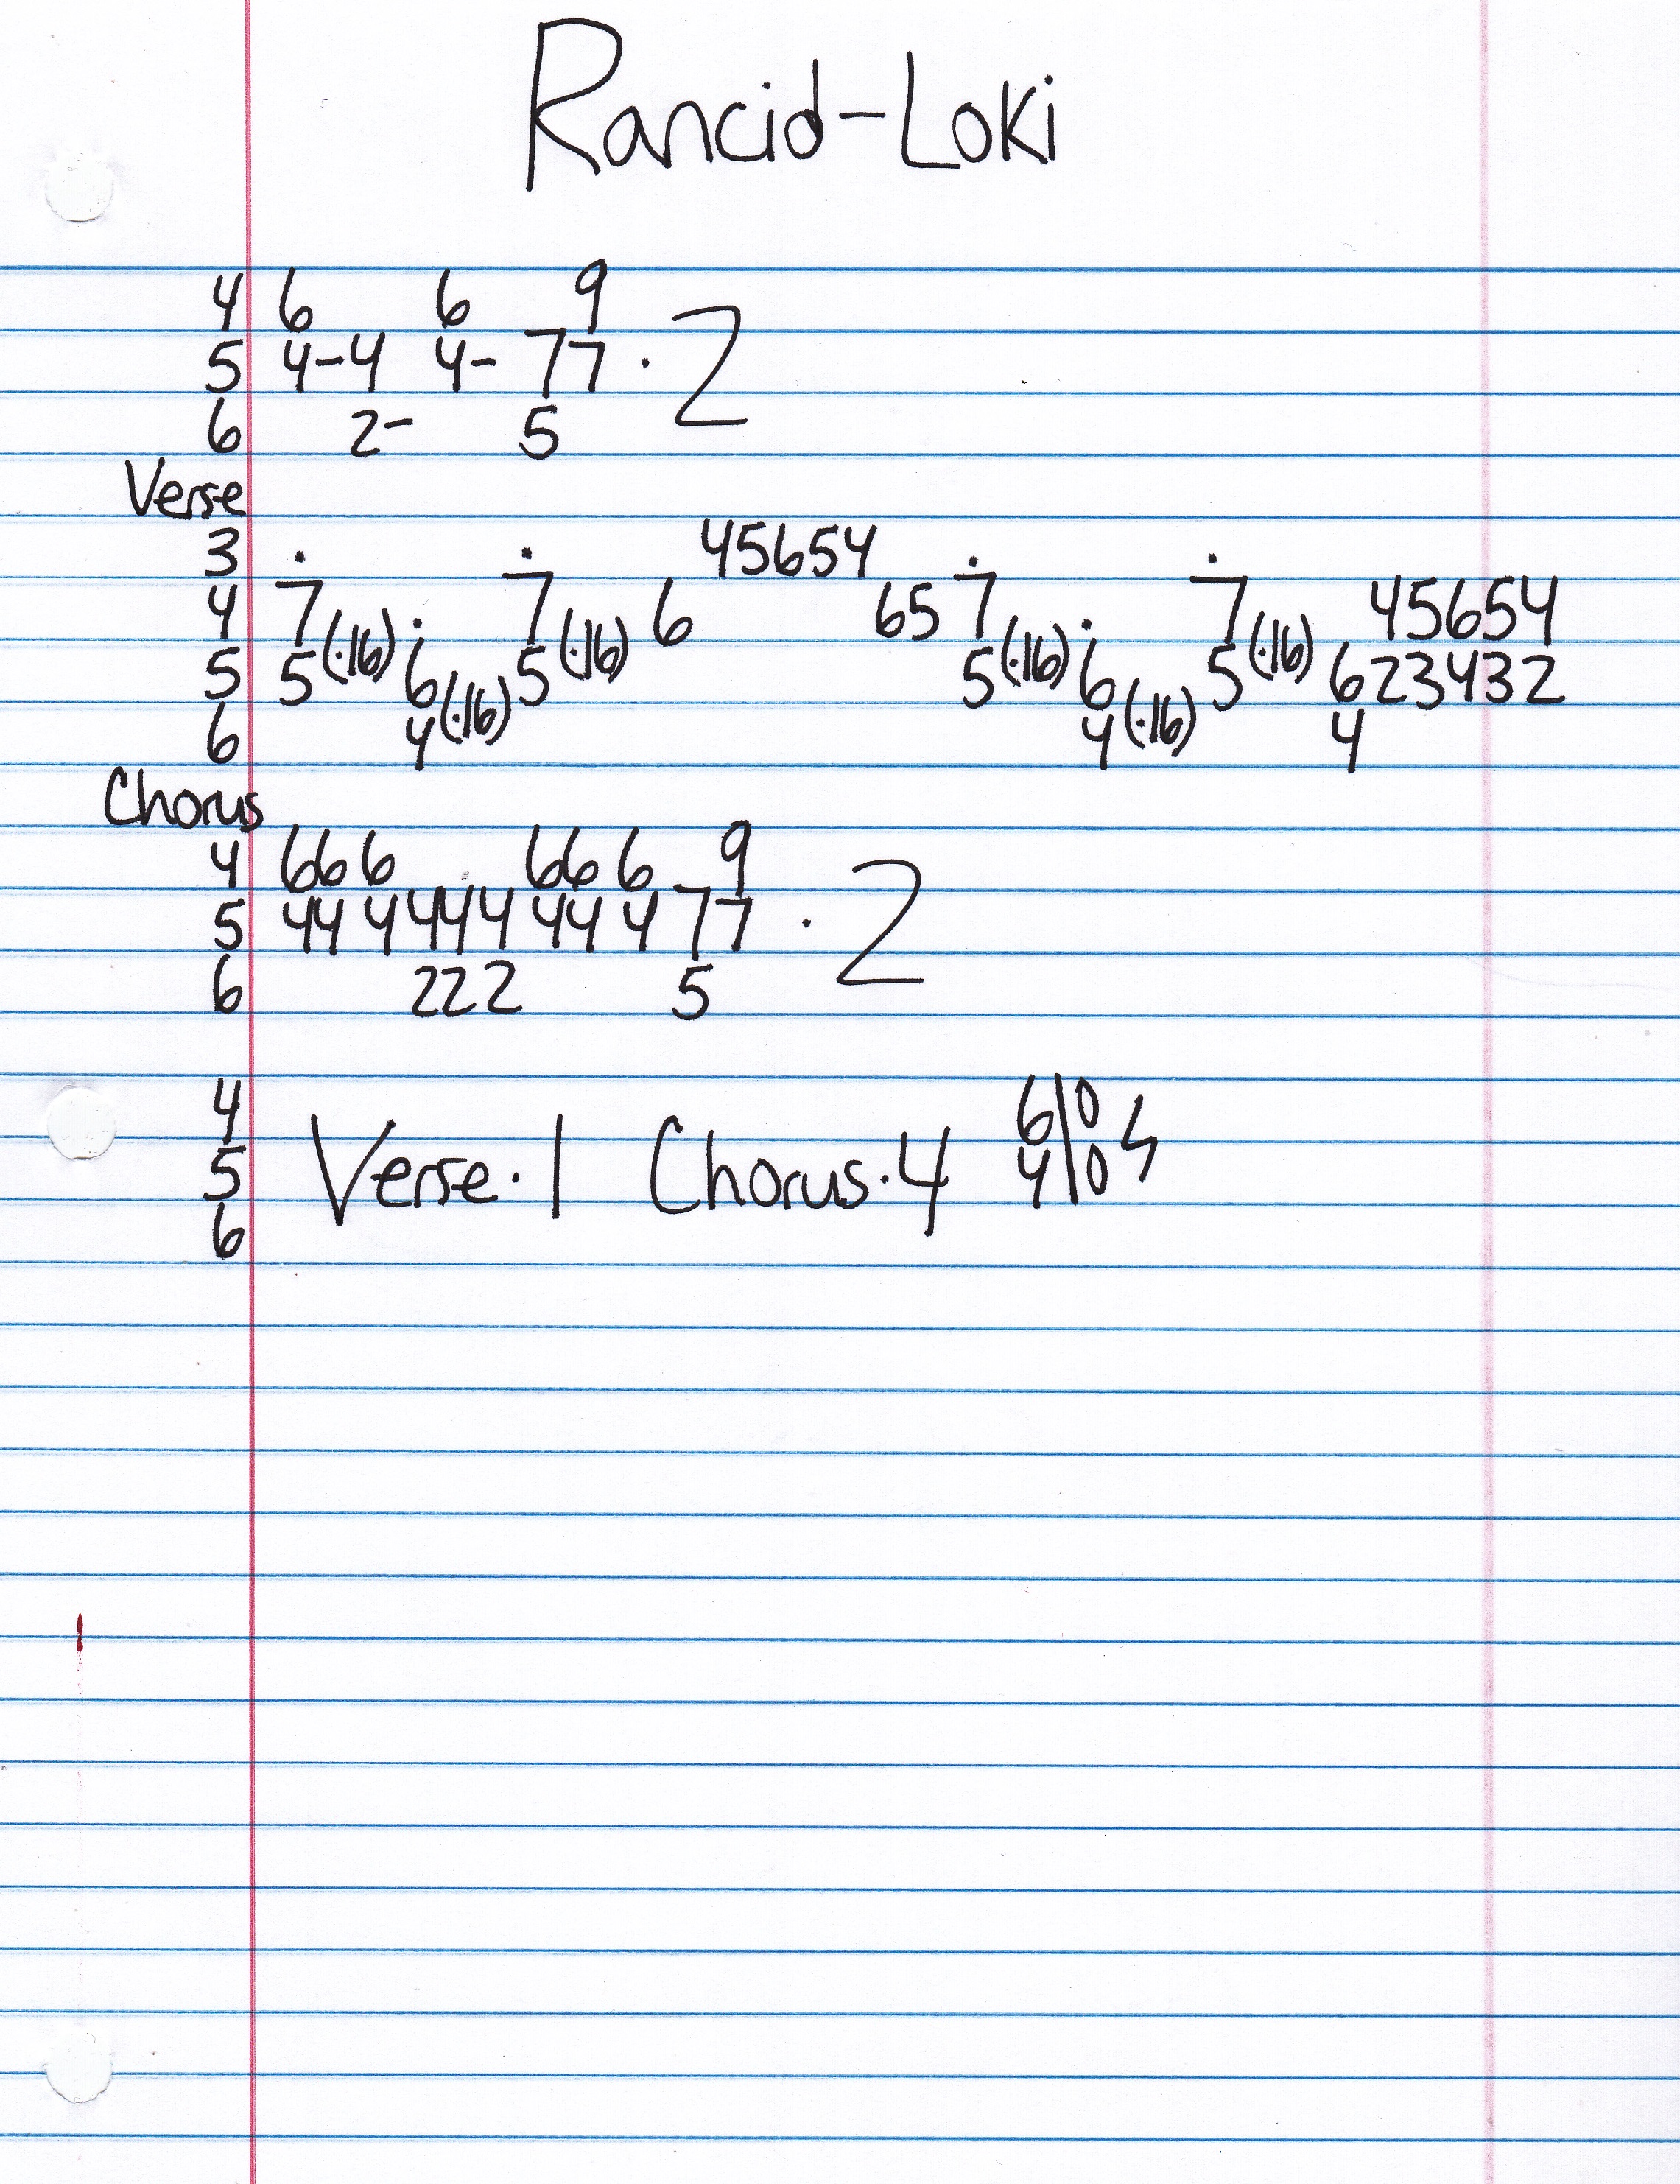 Rancid-Loki
4 6 6 9
5 4-4 4- 77 · 2
6 2- 5
Verse
3 45654
4 7̇ 7̇ 6 65 7̇ 7̇ 45654
5 5(·16) 6̇ 5(·16) 5(·16) 6̇ 5(·16) 623432
6 4(·16) 4(·16) 4
Chorus
4 666 666 9
5 44 4 444 44 4 77 · 2
6 222 5
4 6|0
5 Verse·1 Chorus·4 4|0
6